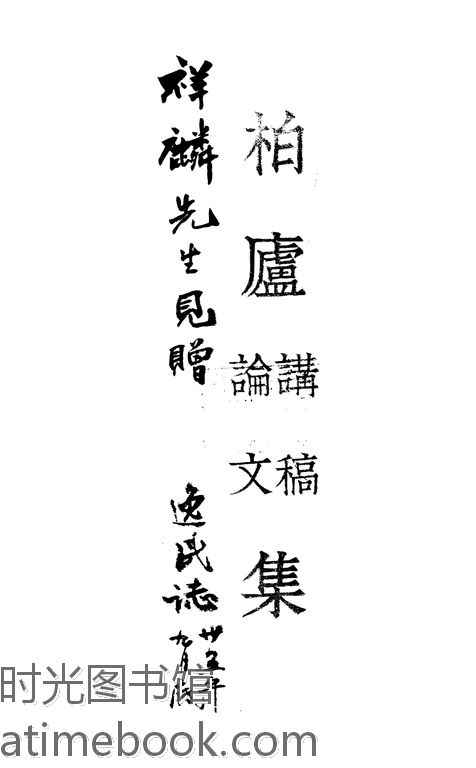 柏廬
講稿
論文
集
祥麟先生見贈
逸民誌
卅五年
九月
时光图书馆
atimebook.com